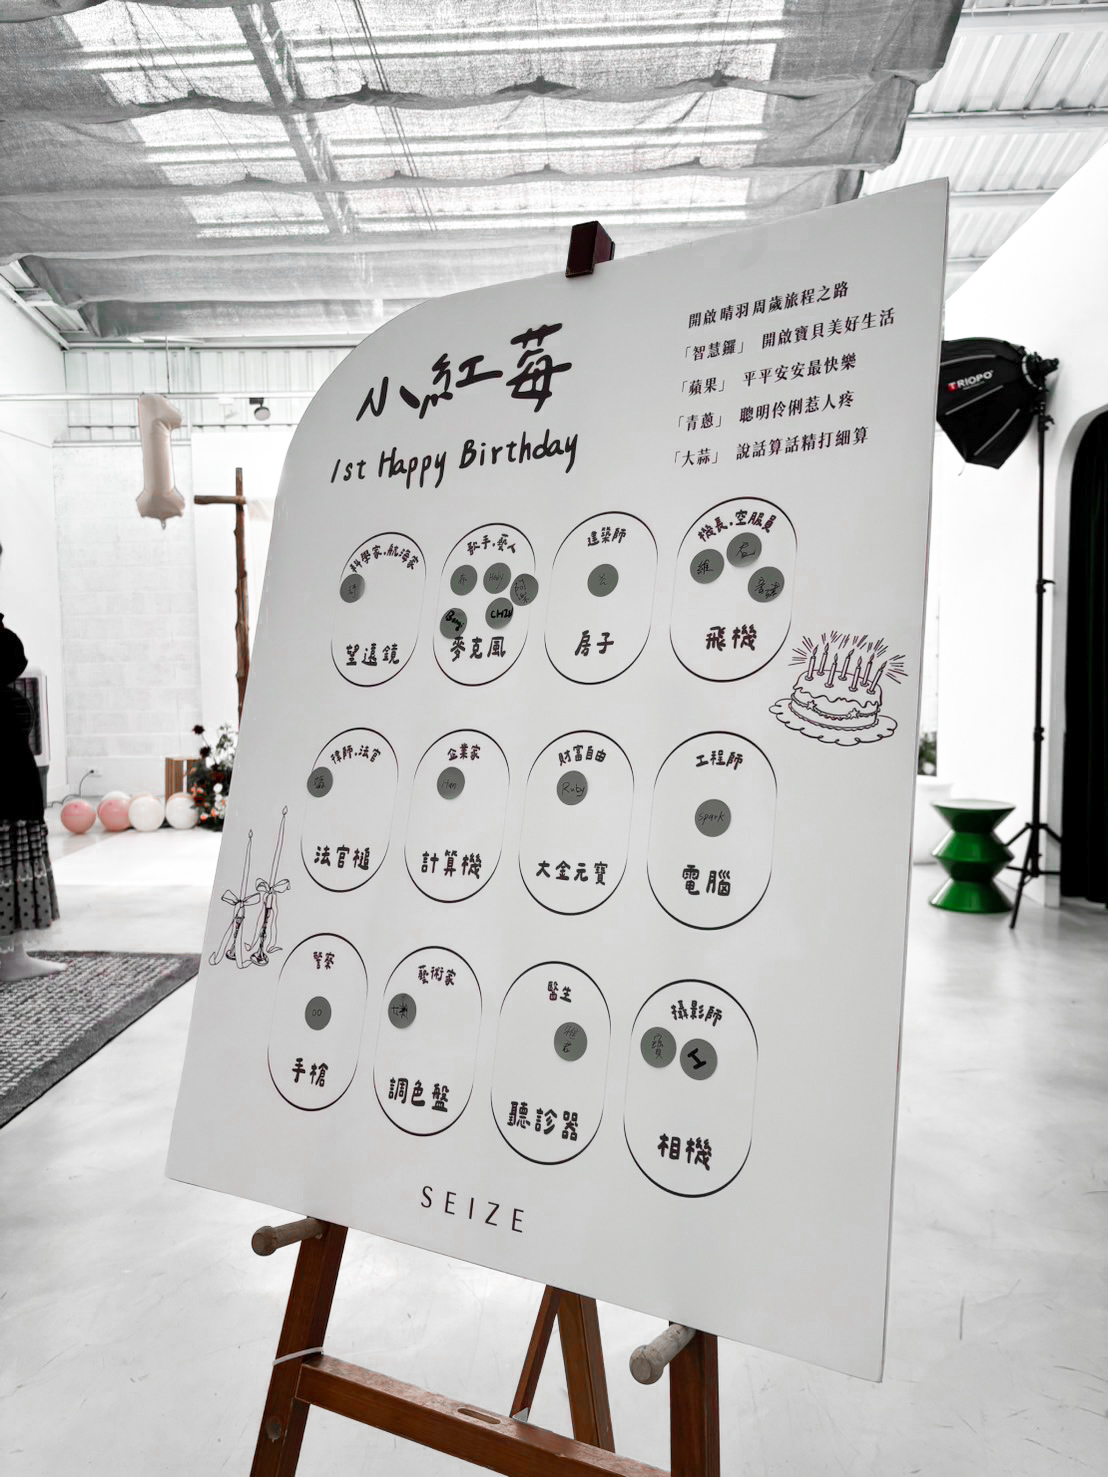 小紅莓
1st Happy Birthday
開啟晴羽周歲旅程之路
「智慧鑼」 開啟寶貝美好生活
「蘋果」 平平安安最快樂
「青蔥」 聰明伶俐惹人疼
「大蒜」 說話算話精打細算
科學家.航海家
望遠鏡
歌手.藝人
CHIN
麥克風
建築師
房子
機長.空服員
維
飛機
律師.法官
法官槌
企業家
計算機
財富自由
Ruby
大金元寶
工程師
spark
電腦
警察
手槍
藝術家
調色盤
醫生
聽診器
攝影師
相機
SEIZE
TRIOPO